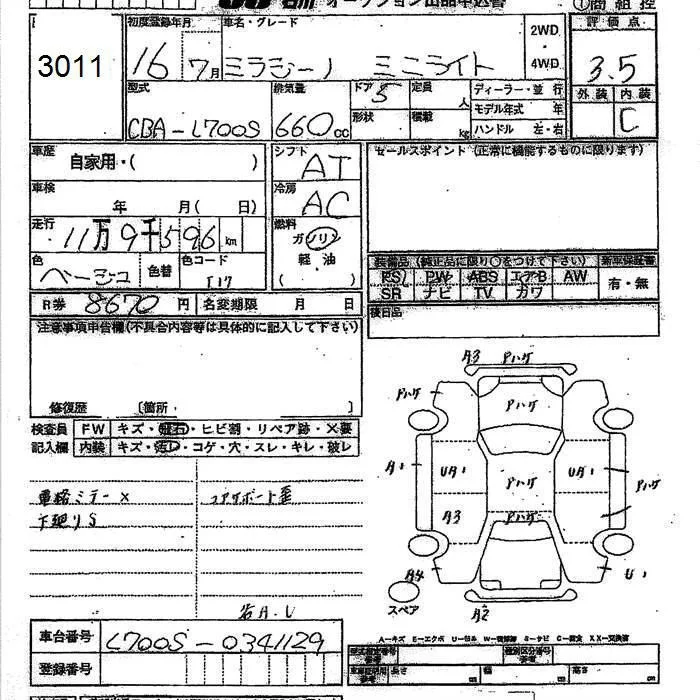 オークション出品申込書
3011
初度登録年月 車名・グレード 2WD・4WD 評価点
16 7月 ミラジーノ ミニライト 3.5
型式 排気量 ドア 5 定員 人 ディーラー・並行 外装 内装
CBA-L700S 660cc 形状 積載 kg モデル年式 年 C
ハンドル 左・右
車歴 自家用・( ) シフト AT セールスポイント(正常に機能するものに限ります)
車検 年 月( 日) 冷房 AC
走行 11万9千596km 燃料 ガソリン
色 ベージュ 色替 色コード T17 軽油
装備品(純正品に限り○をつけて下さい) 新車保証書
PS PW ABS エアB AW 有・無
SR ナビ TV カワ
R券 8670円 名変期限 月 日 後日品
注意事項申告欄(不具合内容等は具体的に記入して下さい)
修復歴 〔箇所 〕
検査員 FW キズ・飛石・ヒビ割・リペア跡・X要
記入欄 内装 キズ・汚レ・コゲ・穴・スレ・キレ・破レ
電格ミラー× コアサポート歪
下廻りS
A3 Pハゲ
Pハゲ Pハゲ
A1 UA1 Pハゲ UA1 Pハゲ
A3 Pハゲ
A4 U1
スペア A2
A-キズ E-エクボ U-凹ミ W-補修跡 S-サビ C-腐食 XX-交換済
車台番号 L700S-0341129
登録番号
長さ cm 幅 cm 高さ cm